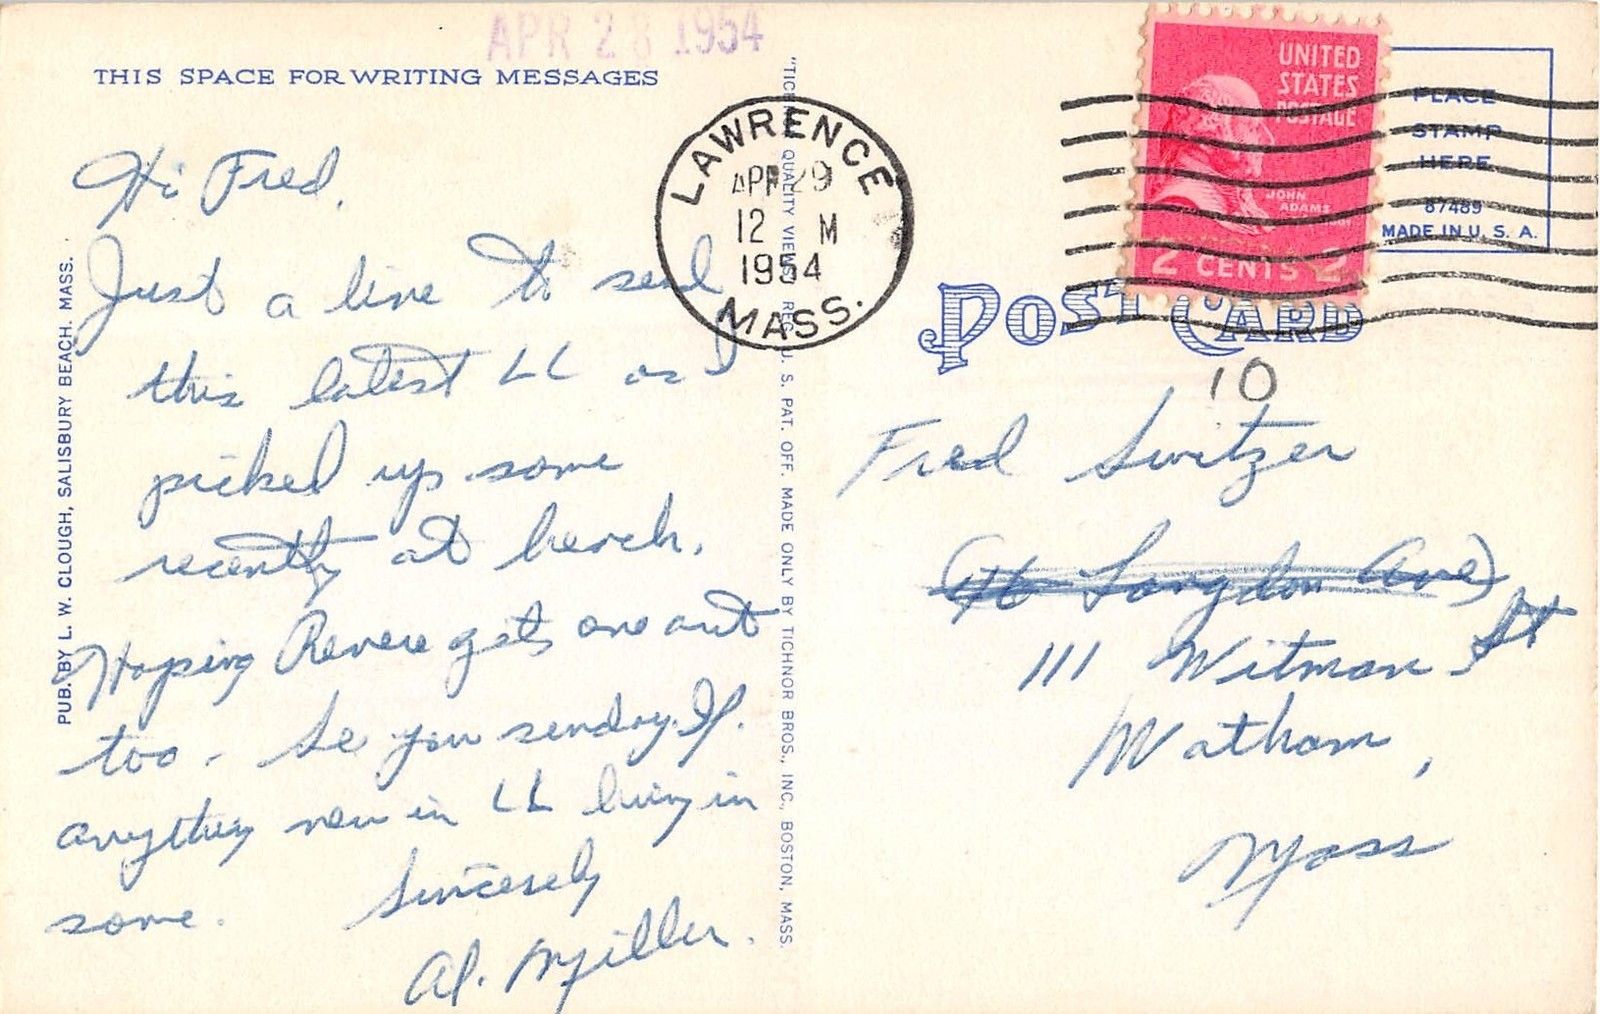 APR 28 1954
THIS SPACE FOR WRITING MESSAGES
Hi Fred,
Just a line to send
this latest LL as I
picked up some
recently at beach.
Hoping Revere gets one out
too. Se you sunday. If.
anything new in LL bring in
some.
Sincerely
Al. Miller.
PUB. BY L. W. CLOUGH, SALISBURY BEACH, MASS.
"TICHNOR QUALITY VIEWS" REG. U. S. PAT. OFF. MADE ONLY BY TICHNOR BROS., INC., BOSTON, MASS.
LAWRENCE
APR 29
12 M
1954
MASS.
UNITED
STATES
POSTAGE
JOHN
ADAMS
2 CENTS 2
PLACE
STAMP
HERE
87489
MADE IN U. S. A.
POST CARD
10
Fred Switzer
(46 Langdon Ave)
111 Witman St
Watham,
Mass